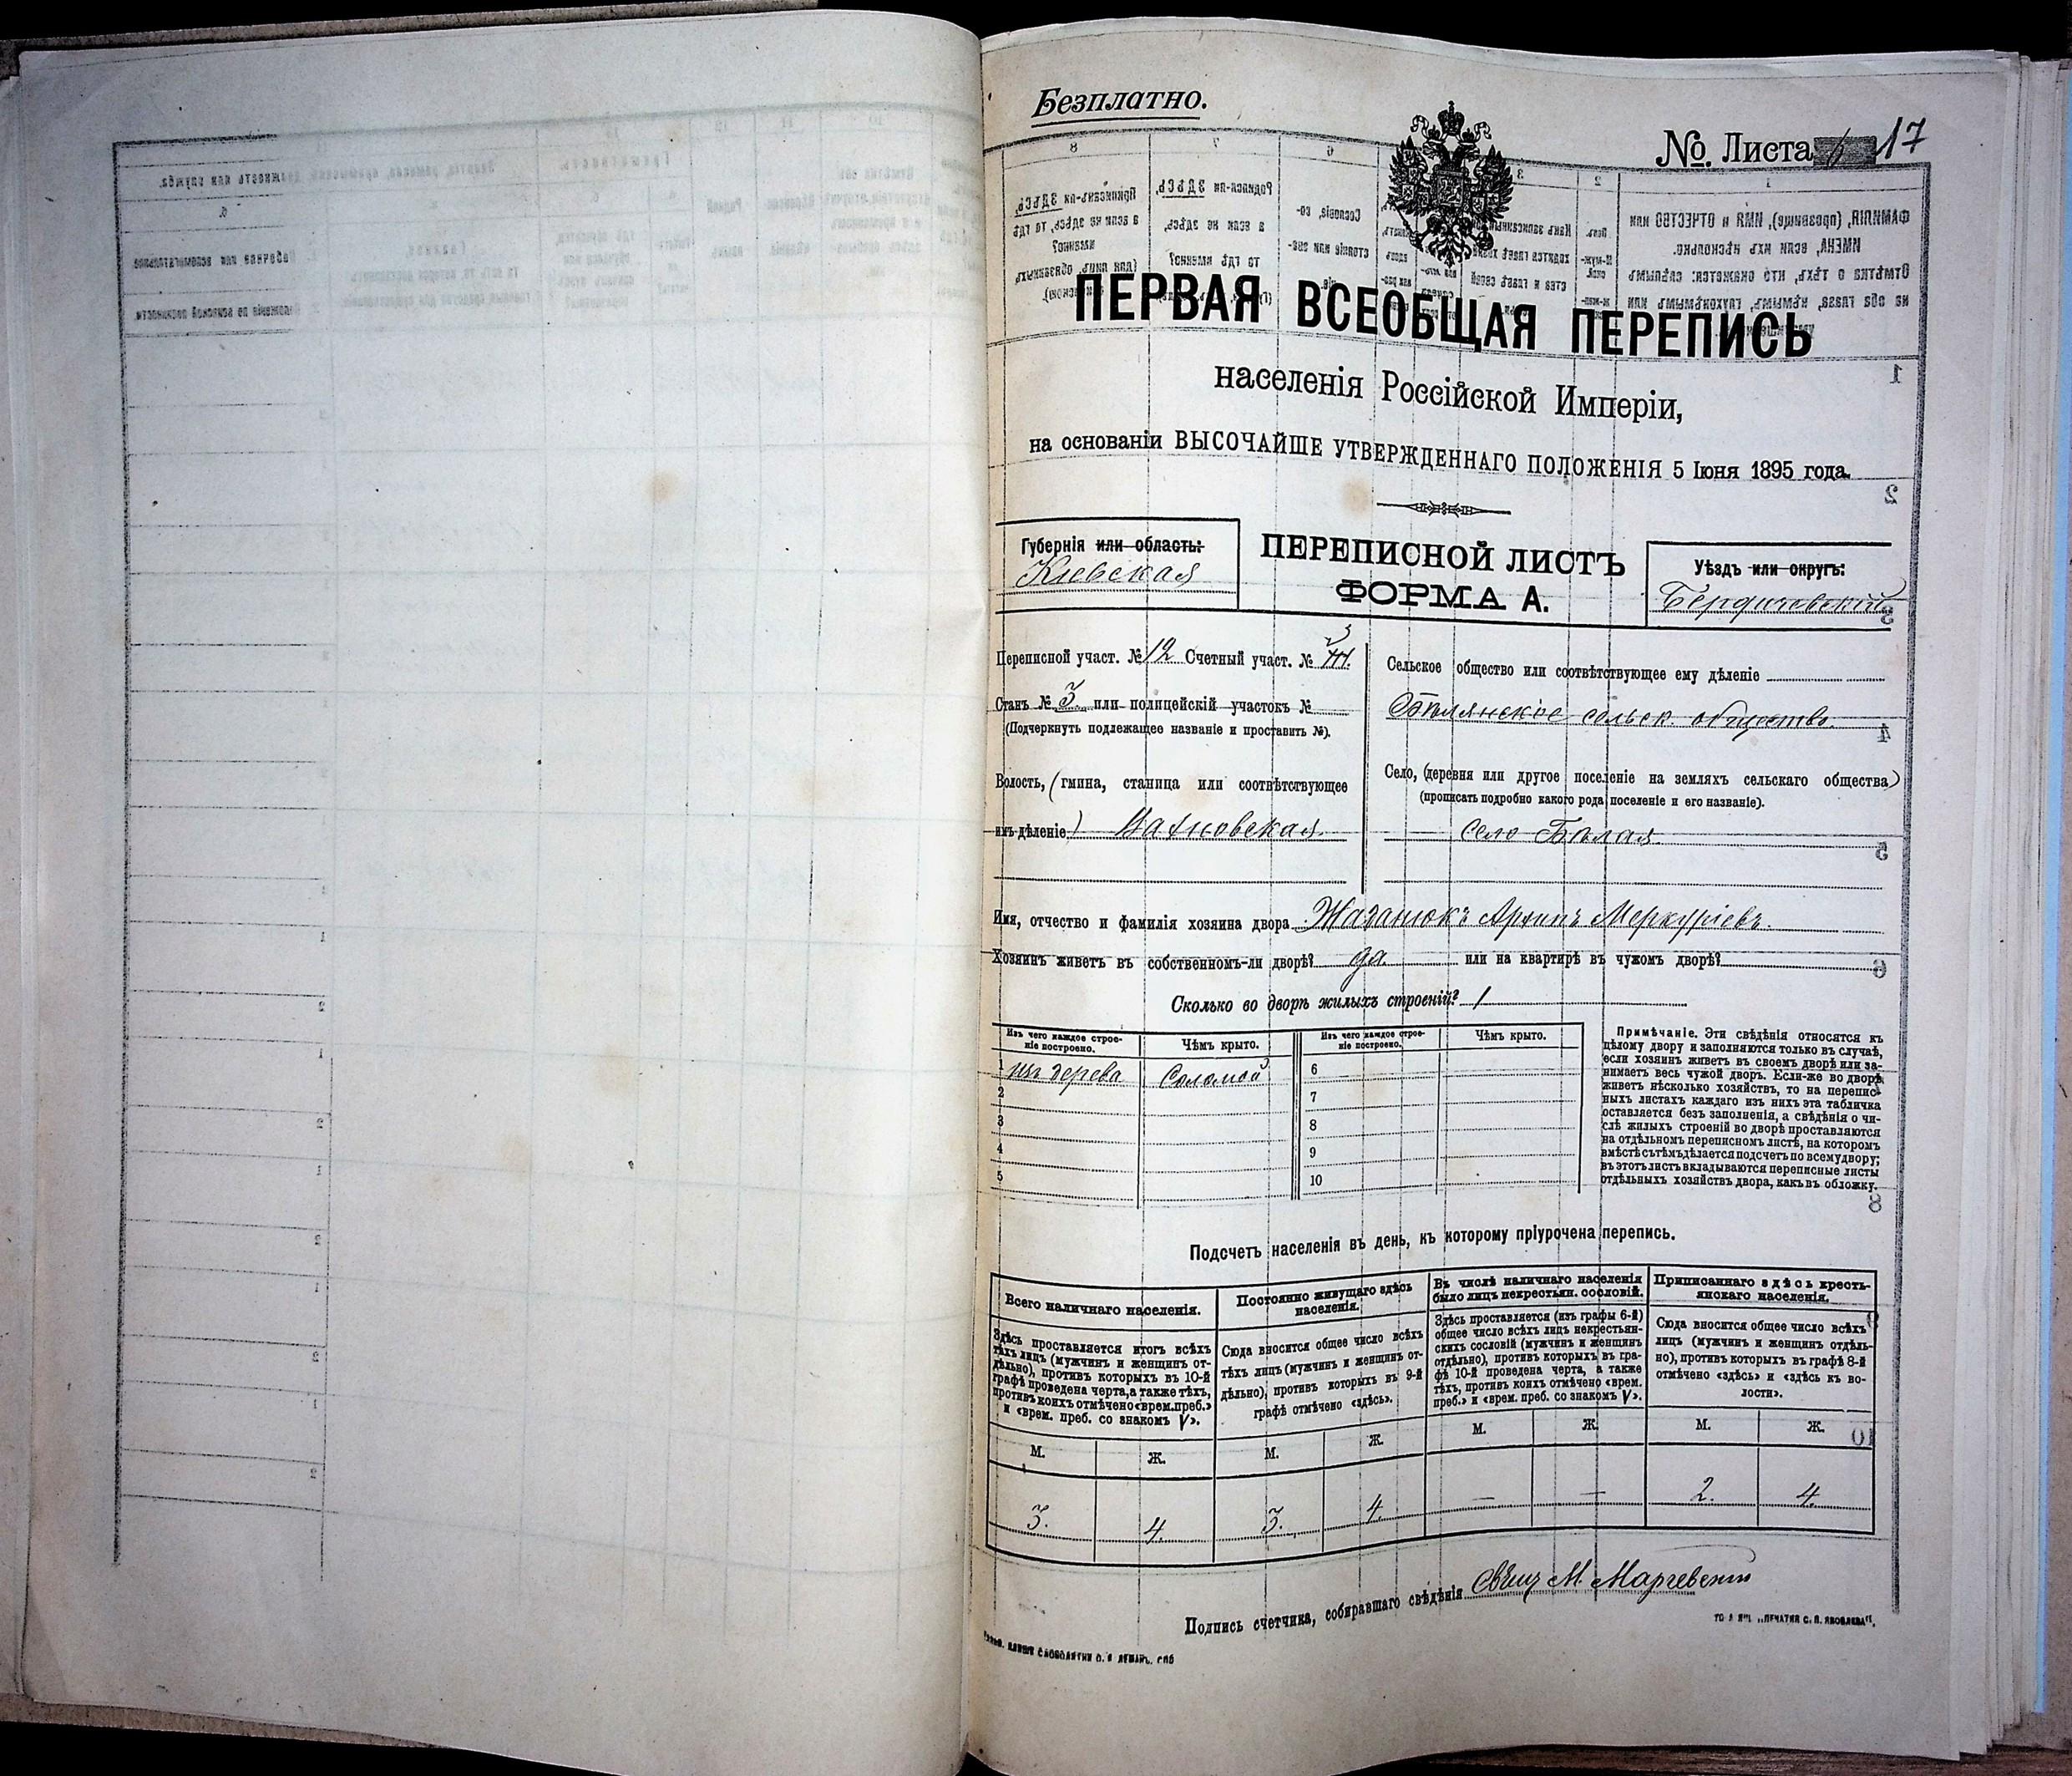 Безплатно.
№ Листа 17
ПЕРВАЯ ВСЕОБЩАЯ ПЕРЕПИСЬ
населенія Россійской Имперіи,
на основаніи ВЫСОЧАЙШЕ УТВЕРЖДЕННАГО ПОЛОЖЕНІЯ 5 Іюня 1895 года.
Губернія или область:
Кіевская
ПЕРЕПИСНОЙ ЛИСТЪ
ФОРМА А.
Уѣздъ или округъ:
Бердичевскій
Переписной участ. № 12 Счетный участ. №
Станъ № 3 или полицейскій участокъ №
(Подчеркнуть подлежащее названіе и проставить №).
Волость, (гмина, станица или соотвѣтствующее
имъ дѣленіе) Вахновская.
Сельское общество или соотвѣтствующее ему дѣленіе
Бѣлянское сельск. общество.
Село, (деревня или другое поселеніе на земляхъ сельскаго общества)
(прописать подробно какого рода поселеніе и его названіе).
село Бѣлая.
Имя, отчество и фамилія хозяина двора Архипъ Меркуріевъ.
Хозяинъ живетъ въ собственномъ-ли дворѣ? да. или на квартирѣ въ чужомъ дворѣ?
Сколько во дворѣ жилыхъ строеній? 1
Изъ чего каждое строе-
ніе построено.
Чѣмъ крыто.
Изъ чего каждое строе-
ніе построено.
Чѣмъ крыто.
1 изъ дерева Соломой 6
2 7
3 8
4 9
5 10
Примѣчаніе. Эти свѣдѣнія относятся къ
цѣлому двору и заполняются только въ случаѣ,
если хозяинъ живетъ въ своемъ дворѣ или за-
нимаетъ весь чужой дворъ. Если-же во дворѣ
живетъ нѣсколько хозяйствъ, то на перепис-
ныхъ листахъ каждаго изъ нихъ эта табличка
оставляется безъ заполненія, а свѣдѣнія о чи-
слѣ жилыхъ строеній во дворѣ проставляются
на отдѣльномъ переписномъ листѣ, на которомъ
вмѣстѣ съ тѣмъ дѣлается подсчетъ по всему двору;
въ этотъ листъ вкладываются переписные листы
отдѣльныхъ хозяйствъ двора, какъ въ обложку.
Подсчетъ населенія въ день, къ которому пріурочена перепись.
Всего наличнаго населенія.
Здѣсь проставляется итогъ всѣхъ
тѣхъ лицъ (мужчинъ и женщинъ от-
дѣльно), противъ которыхъ въ 10-й
графѣ проведена черта, а также тѣхъ,
противъ коихъ отмѣчено «врем. преб.»
и «врем. преб. со знакомъ V».
Постоянно живущаго здѣсь
населенія.
Сюда вносится общее число всѣхъ
тѣхъ лицъ (мужчинъ и женщинъ от-
дѣльно), противъ которыхъ въ 9-й
графѣ отмѣчено «здѣсь».
Въ числѣ наличнаго населенія
было лицъ некрестьян. сословій.
Здѣсь проставляется (изъ графы 6-й)
общее число всѣхъ лицъ некрестьян-
скихъ сословій (мужчинъ и женщинъ
отдѣльно), противъ которыхъ въ гра-
фѣ 10-й проведена черта, а также
тѣхъ, противъ коихъ отмѣчено «врем.
преб.» и «врем. преб. со знакомъ V».
Приписаннаго здѣсь кресть-
янскаго населенія.
Сюда вносится общее число всѣхъ
лицъ (мужчинъ и женщинъ отдѣль-
но), противъ которыхъ въ графѣ 8-й
отмѣчено «здѣсь» и «здѣсь къ во-
лости».
М. Ж. М. Ж. М. Ж. М. Ж.
3. 4. 3. 4. — — 2. 4.
Подпись счетчика, собиравшаго свѣдѣнія М.